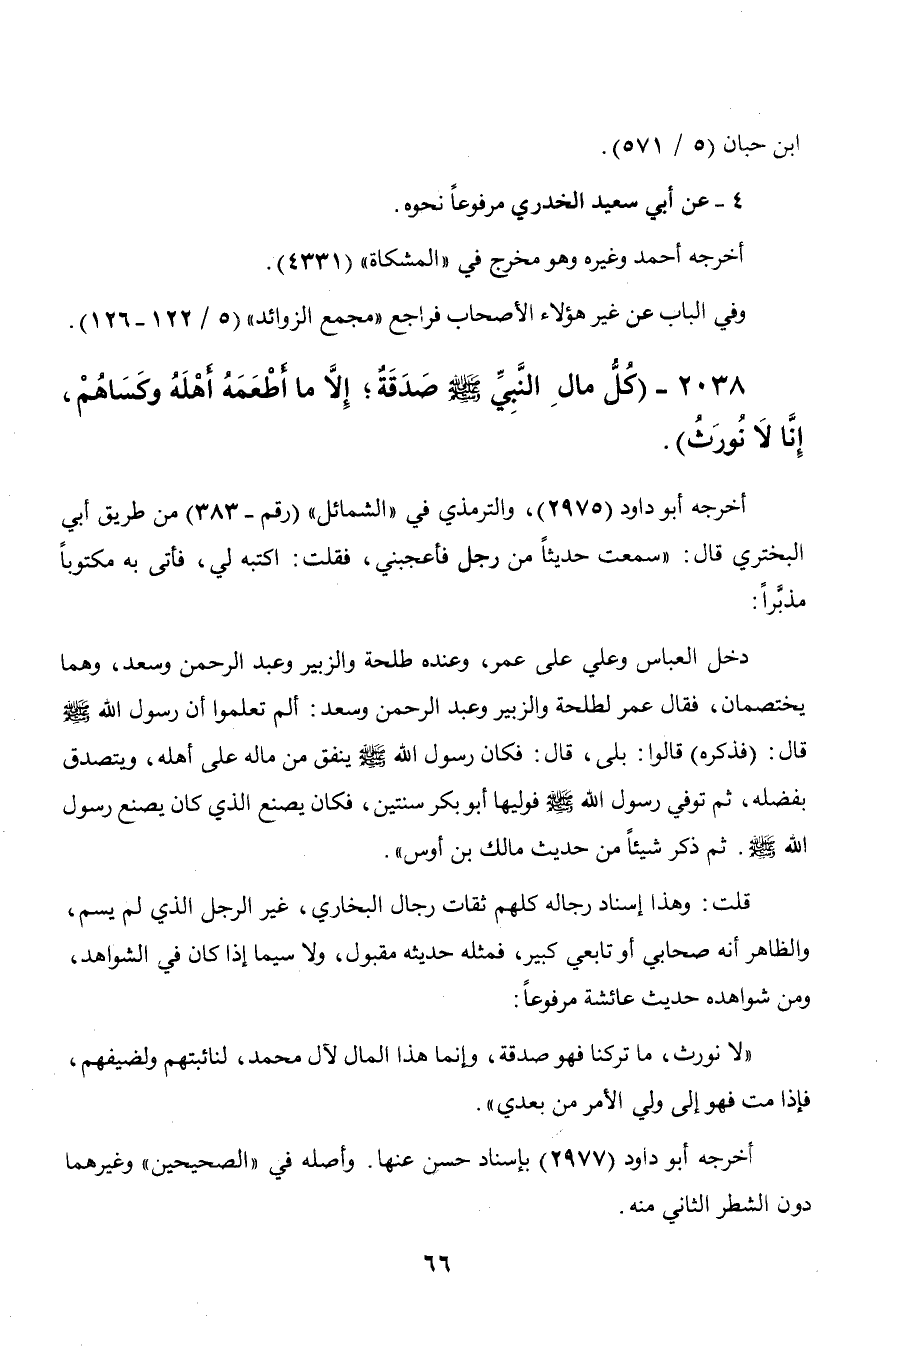 ابن حبان (٥ / ٥٧١).
٤ ـ عن أبي سعيد الخدري مرفوعاً نحوه.
أخرجه أحمد وغيره وهو مخرج في «المشكاة» (٤٣٣١).
وفي الباب عن غير هؤلاء الأصحاب فراجع «مجمع الزوائد» (٥ / ١٢٢ ـ ١٢٦).
٢٠٣٨ ـ (كُلُّ مالِ النَّبِيِّ ﷺ صَدَقَةٌ؛ إِلَّا ما أَطْعَمَهُ أَهْلَهُ وكَسَاهُمْ،
إِنَّا لَا نُورَثُ).
أخرجه أبو داود (٢٩٧٥)، والترمذي في «الشمائل» (رقم ـ ٣٨٣) من طريق أبي
البختري قال: «سمعت حديثاً من رجل فأعجبني، فقلت: اكتبه لي، فأتى به مكتوباً
مذبَّراً:
دخل العباس وعلي على عمر، وعنده طلحة والزبير وعبد الرحمن وسعد، وهما
يختصمان، فقال عمر لطلحة والزبير وعبد الرحمن وسعد: ألم تعلموا أن رسول الله ﷺ
قال: (فذكره) قالوا: بلى، قال: فكان رسول الله ﷺ ينفق من ماله على أهله، ويتصدق
بفضله، ثم توفي رسول الله ﷺ فوليها أبو بكر سنتين، فكان يصنع الذي كان يصنع رسول
الله ﷺ. ثم ذكر شيئاً من حديث مالك بن أوس».
قلت: وهذا إسناد رجاله كلهم ثقات رجال البخاري، غير الرجل الذي لم يسم،
والظاهر أنه صحابي أو تابعي كبير، فمثله حديثه مقبول، ولا سيما إذا كان في الشواهد،
ومن شواهده حديث عائشة مرفوعاً:
«لا نورث، ما تركنا فهو صدقة، وإنما هذا المال لآل محمد، لنائبتهم ولضيفهم،
فإذا مت فهو إلى ولي الأمر من بعدي».
أخرجه أبو داود (٢٩٧٧) بإسناد حسن عنها. وأصله في «الصحيحين» وغيرهما
دون الشطر الثاني منه.
٦٦